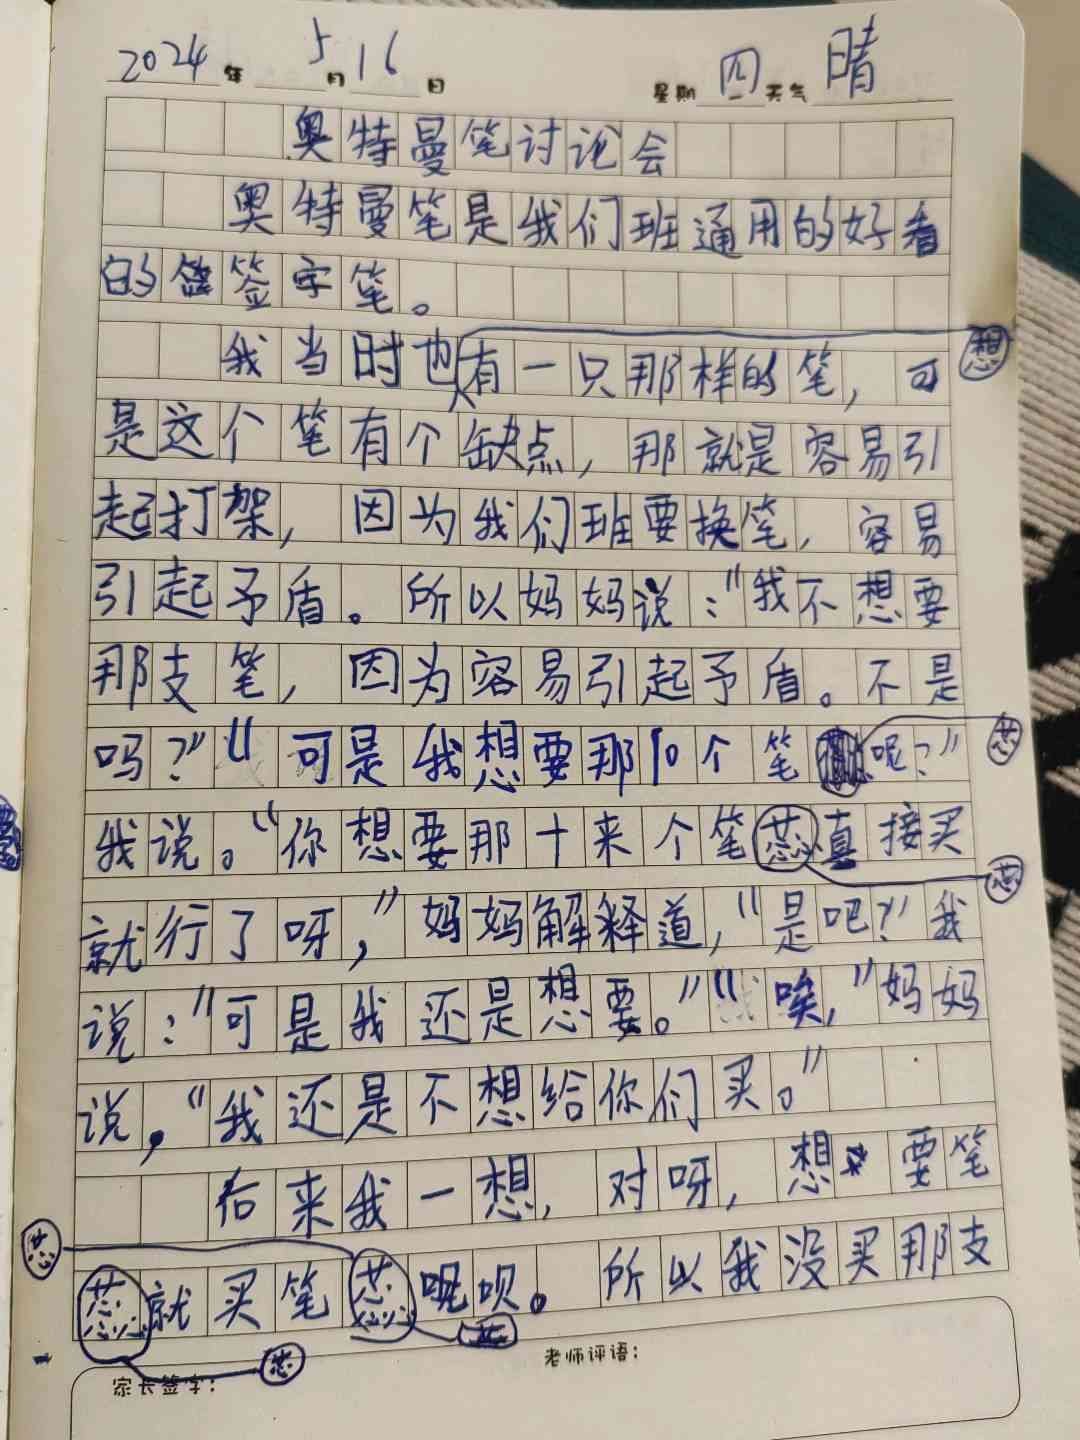 2024年5月16日 星期四 天气晴
奥特曼笔讨论会
奥特曼笔是我们班通用的好看
的签字笔。
我当时也想有一只那样的笔，可
是这个笔有个缺点，那就是容易引
起打架，因为我们班要换笔，容易
引起予盾。所以妈妈说："我不想要
那支笔，因为容易引起予盾。不是
吗？""可是我想要那10个笔芯呢？"
我说。"你想要那十来个笔芯直接买
就行了呀，"妈妈解释道，"是吧？"我
说："可是我还是想要。""唉，"妈妈
说，"我还是不想给你们买。"
后来我一想，对呀，想要笔
芯就买笔芯呗。所以我没买那支
老师评语：
家长签字：